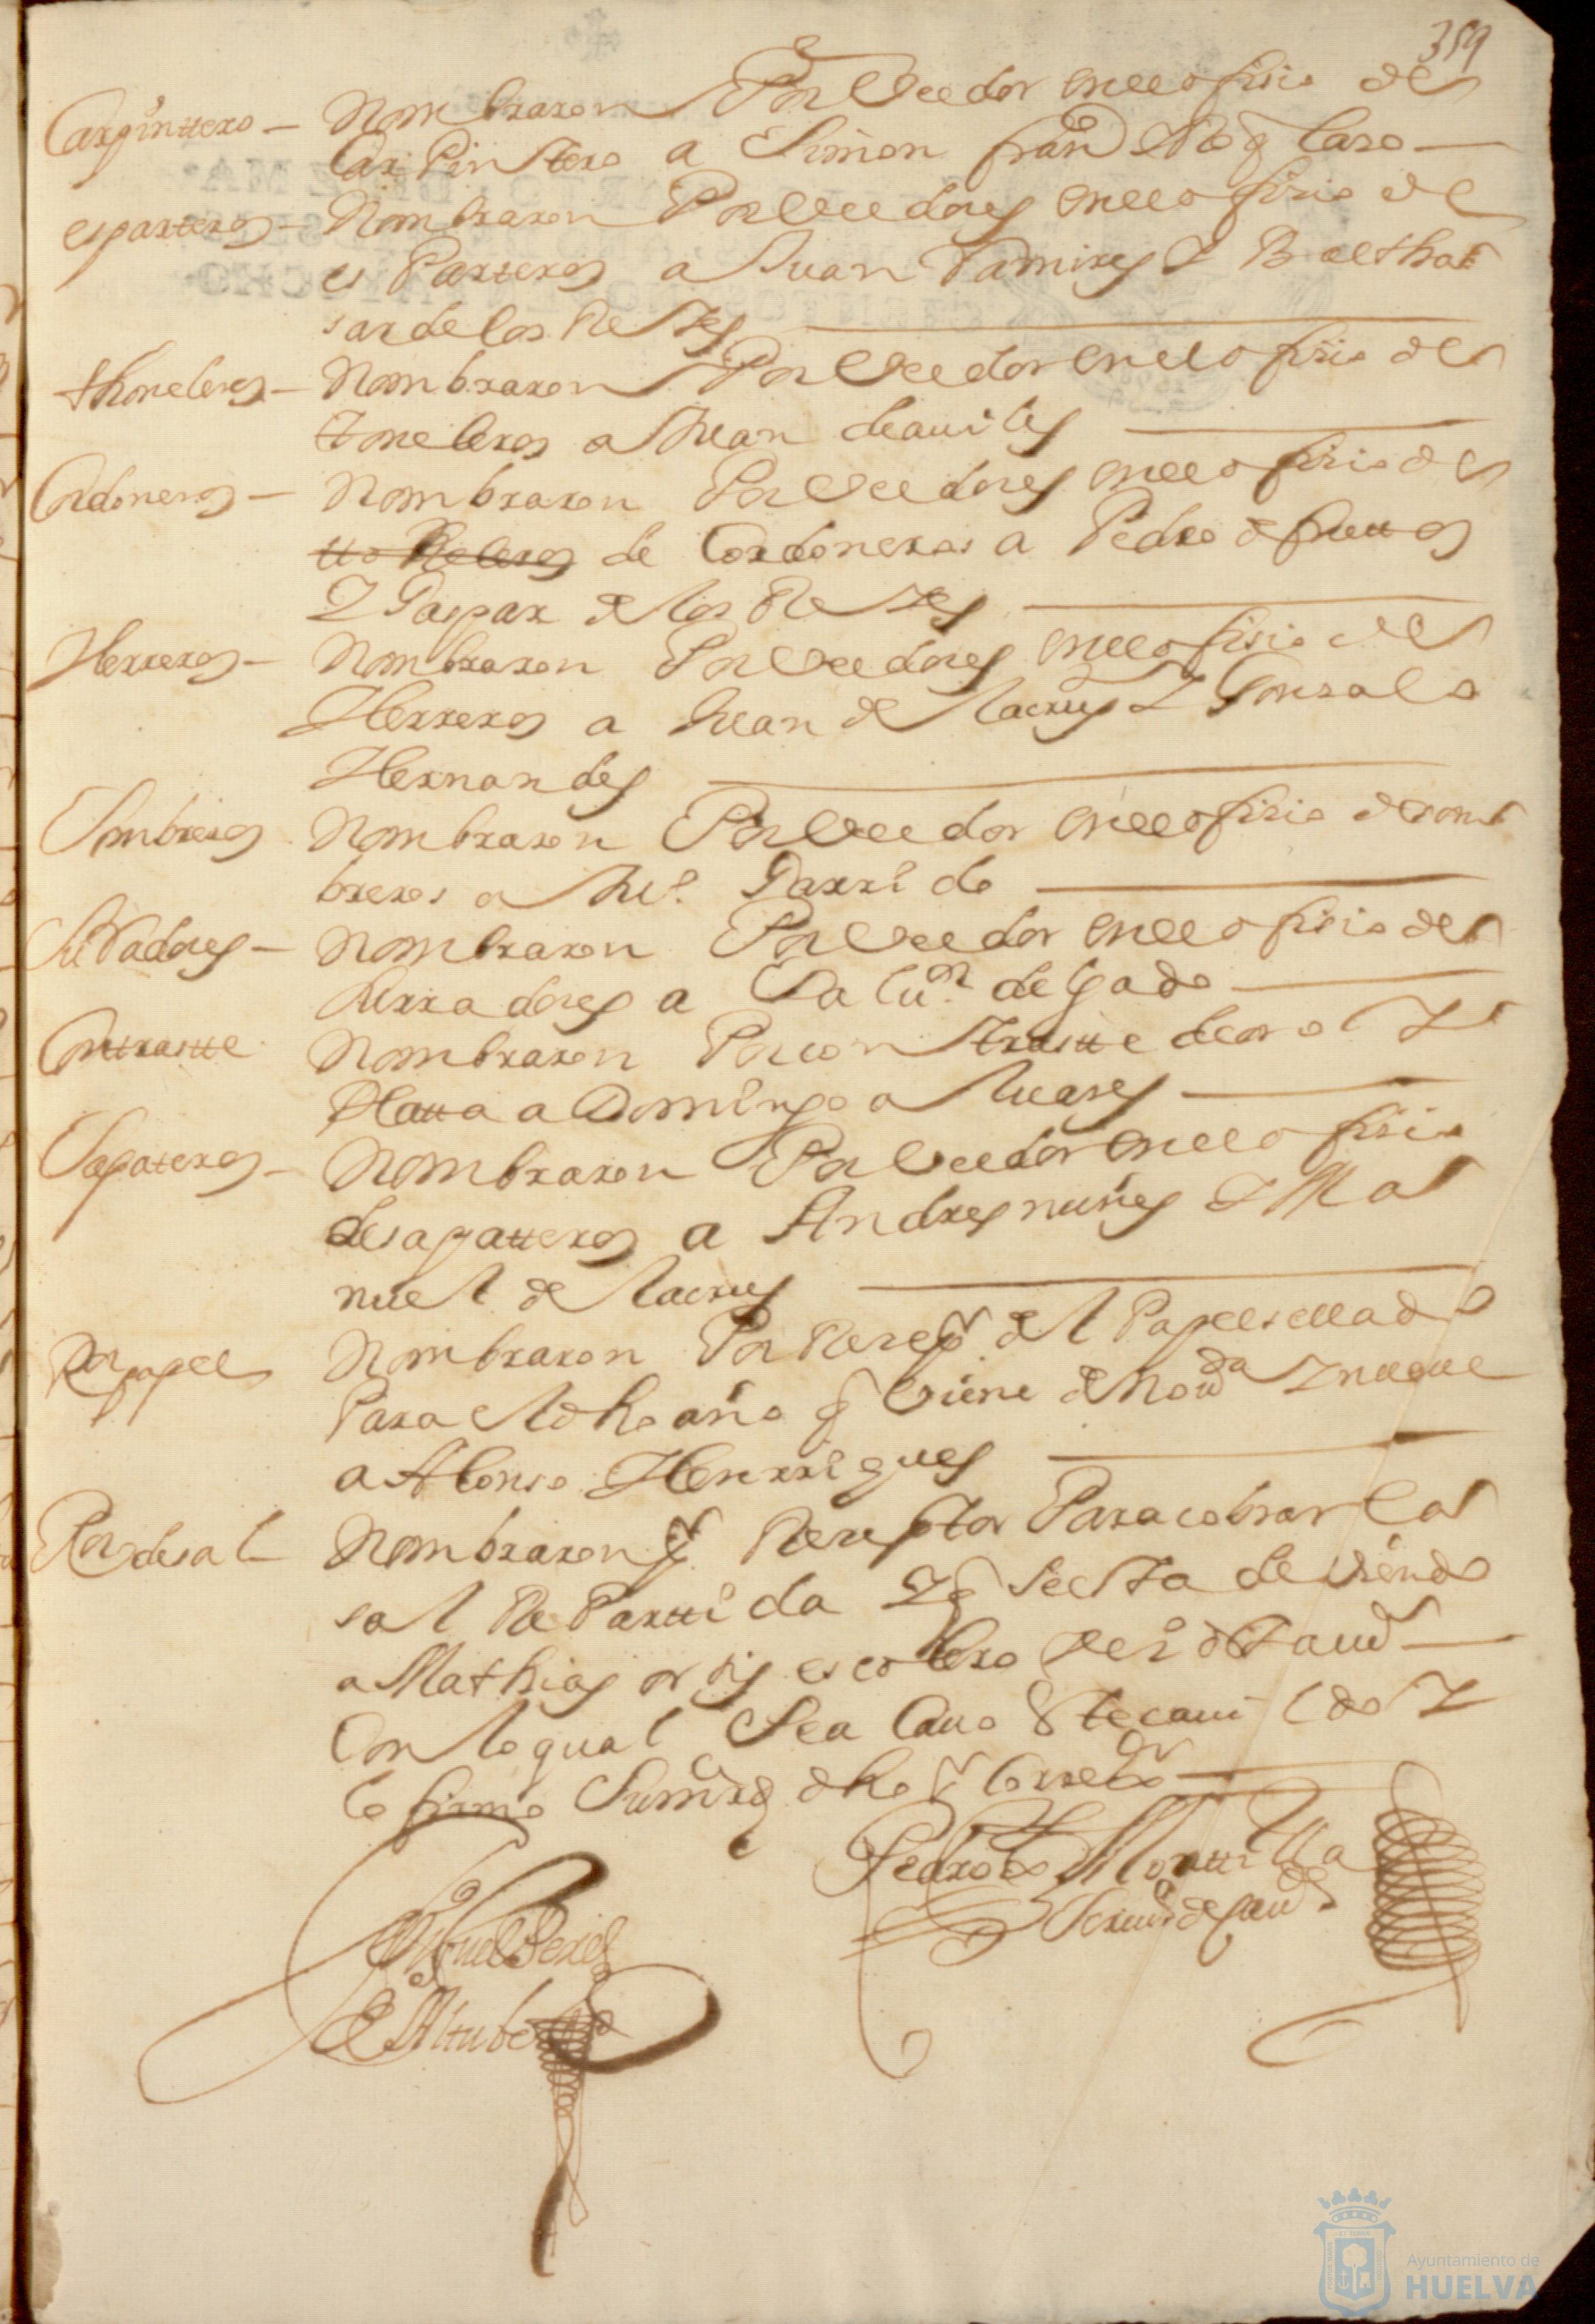 359
Carpinttero — Nombraron Por Veedor en el ofisio de
Carpinttero a Simon fran^co
esparteros — Nombraron Por Veedores en el ofisio de
esParteros a Juan Ramires Y Balthas
sar de los ReYes
thoneleros — Nombraron Por Veedor en el ofisio de
toneleros a Juan de auiles
Cordoneros — Nombraron Por Veedores en el ofisio de
de Cordoneros a Pedro de fruttos
Y Gaspar de los ReYes
Herreros — Nombraron Por Veedores en el ofisio de
Herreros a Juan de la crus Y Gonsalo
Hernandes
Sombreros Nombraron Por Veedor en el ofisio de som
breros a Ju^o Garrido
Surradores — Nombraron Por Veedor en el ofisio de
surradores a delgado
Conttraste Nombraron Por conttraste de oro Y
Platta a Domingo a Juares
Sapateros — Nombraron Por Veedor en el ofisio
de sapatteros a Andres nuñes Y Ma
nuel de la crus
R^or papel Nombraron Por Resep^r del Papel sellado
Para el dho año q Viene de nou^ta Y nueue
a Alonso Henrriques
R^or de sal — Nombraron p^r Reseptor Para cobrar la
sal RePartida Y q se esta deuiendo
a Mathias ortis escobero Ve^o desta ciu^d
Con lo qual Sea Cauo este cauildo Y
lo firmo Su m^rd dho s^r Corre^dor
Pedro de Montilla
Scriu^o de cau^do
Miguel Peres
de Altube
Ayuntamiento de
HUELVA